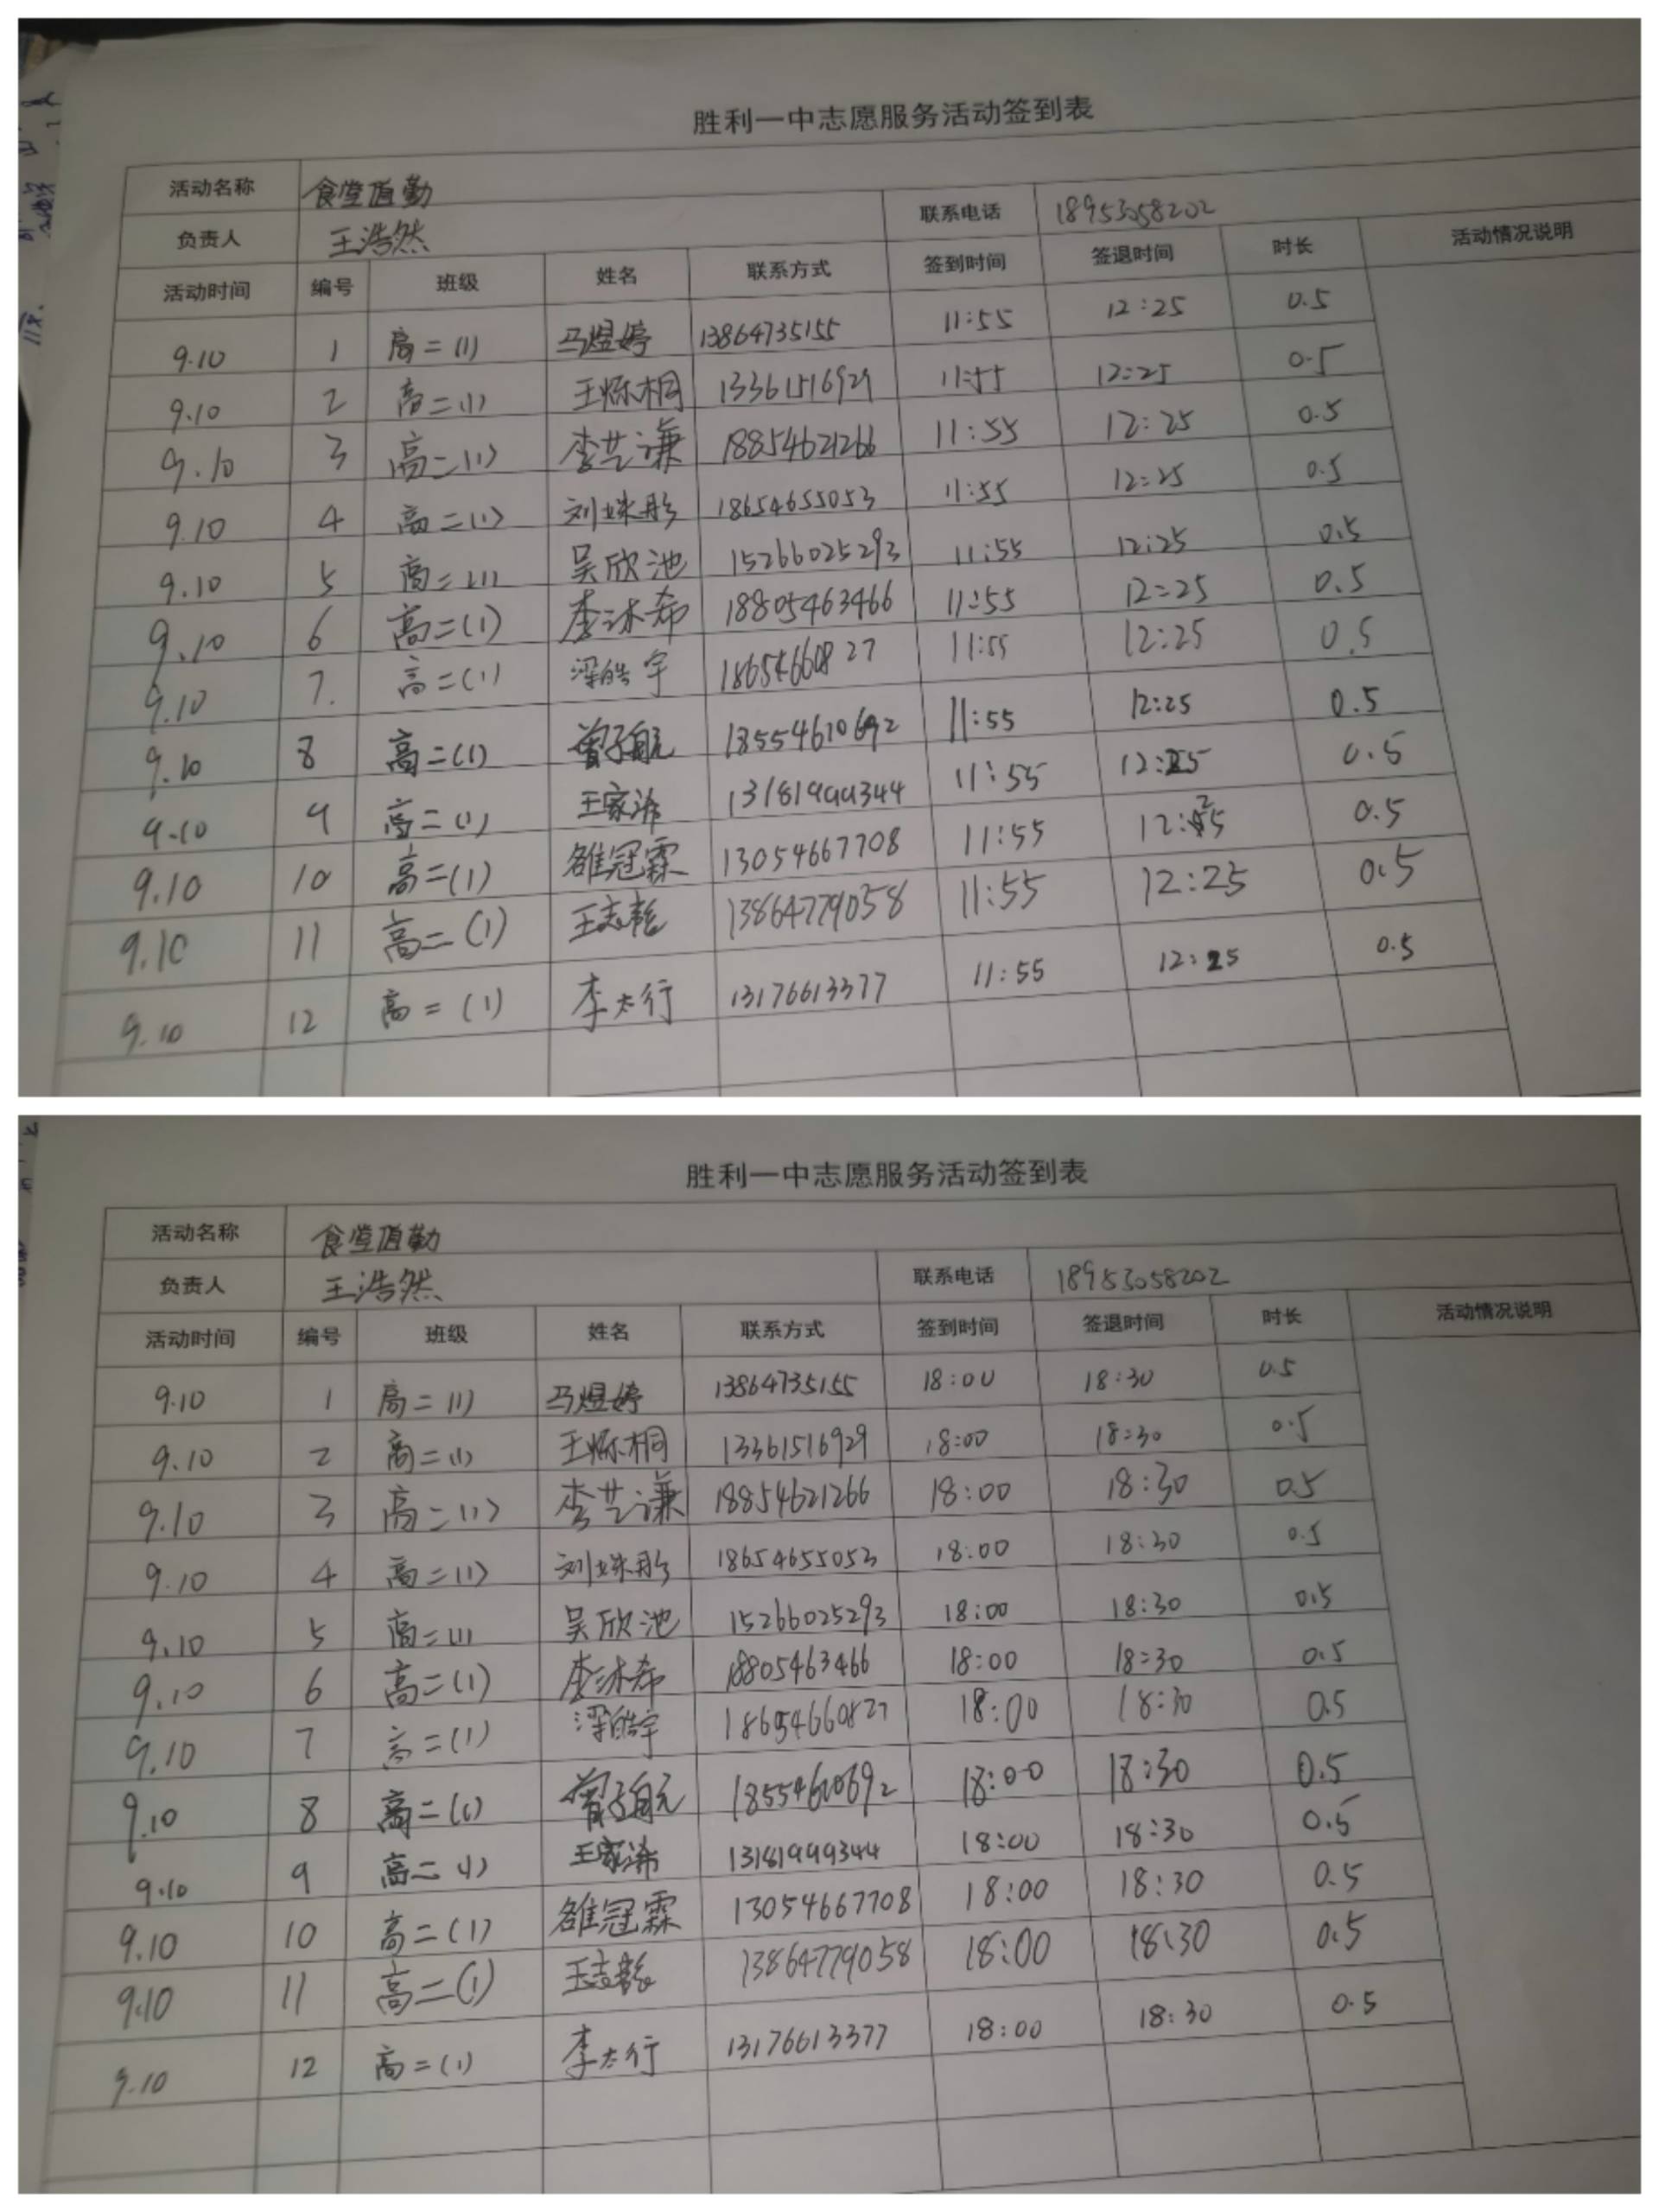 胜利一中志愿服务活动签到表
活动名称 食堂值勤
负责人 王浩然 联系电话 18953058202
活动时间 编号 班级 姓名 联系方式 签到时间 签退时间 时长 活动情况说明
9.10 1 高二(1) 马煜婷 13864735155 11:55 12:25 0.5
9.10 2 高二(1) 王烁桐 13361516929 11:55 12:25 0.5
9.10 3 高二(1) 李艺谦 18854621266 11:55 12:25 0.5
9.10 4 高二(1) 刘姝彤 18654655053 11:55 12:25 0.5
9.10 5 高二(1) 吴欣池 15266025293 11:55 12:25 0.5
9.10 6 高二(1) 李沐希 18805463466 11:55 12:25 0.5
9.10 7. 高二(1) 梁皓宇 18654660827 11:55 12:25 0.5
9.10 8 高二(1) 曾子航 18554610692 11:55 12:25 0.5
9.10 9 高二(1) 王家 13181999344 11:55 12:25 0.5
9.10 10 高二(1) 雒冠霖 13054667708 11:55 12:25 0.5
9.10 11 高二(1) 王志 13864779058 11:55 12:25 0.5
9.10 12 高二(1) 李太行 13176613377 11:55 12:25 0.5
胜利一中志愿服务活动签到表
活动名称 食堂值勤
负责人 王浩然 联系电话 18953058202
活动时间 编号 班级 姓名 联系方式 签到时间 签退时间 时长 活动情况说明
9.10 1 高二(1) 马煜婷 13864735155 18:00 18:30 0.5
9.10 2 高二(1) 王烁桐 13361516929 18:00 18:30 0.5
9.10 3 高二(1) 李艺谦 18854621266 18:00 18:30 0.5
9.10 4 高二(1) 刘姝彤 18654655053 18:00 18:30 0.5
9.10 5 高二(1) 吴欣池 15266025293 18:00 18:30 0.5
9.10 6 高二(1) 李沐希 18805463466 18:00 18:30 0.5
9.10 7 高二(1) 梁皓宇 18654660827 18:00 18:30 0.5
9.10 8 高二(1) 曾子航 18554610692 18:00 18:30 0.5
9.10 9 高二(1) 王家 13181999344 18:00 18:30 0.5
9.10 10 高二(1) 雒冠霖 13054667708 18:00 18:30 0.5
9.10 11 高二(1) 王志 13864779058 18:00 18:30 0.5
9.10 12 高二(1) 李太行 13176613377 18:00 18:30 0.5